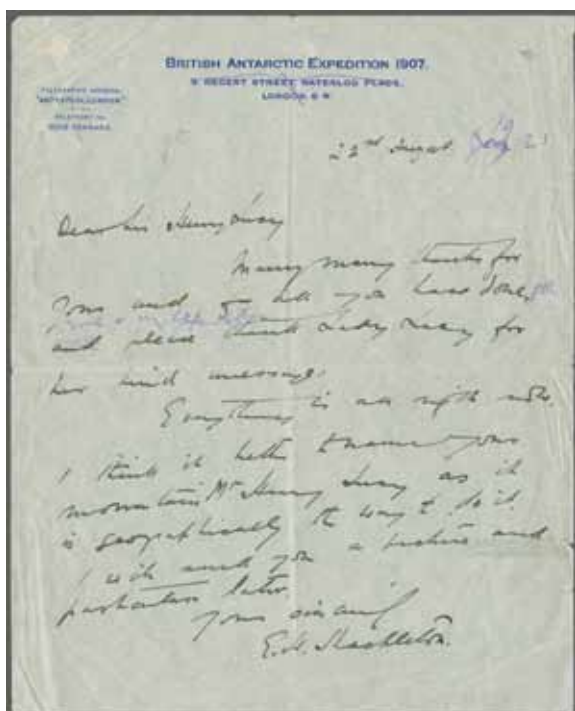 BRITISH ANTARCTIC EXPEDITION 1907.
9 REGENT STREET WATERLOO PLACE,
LONDON. S W.
TELEGRAPHIC ADDRESS,
TELEPHONE No.
22nd August
Dear Sir Henry Lucy
Many many thanks for
yours and all you have done,
and please thank Lady Lucy for
her kind message.
Everything is all right now.
I think it better to name your
mountain Mt Henry Lucy as it
is geographically the way to do it.
I will send you a picture and
particulars later.
Yours sincerely
E.H. Shackleton.